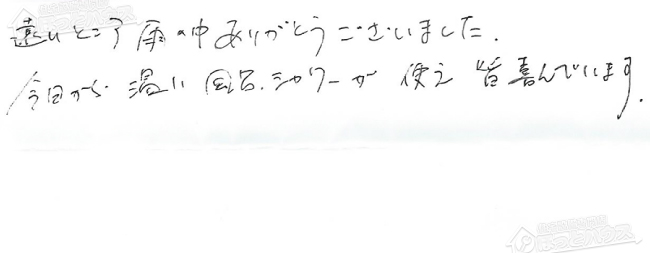 遠いところ雨の中ありがとうございました.
今日から温い風呂.シャワーが使え皆喜んでいます.